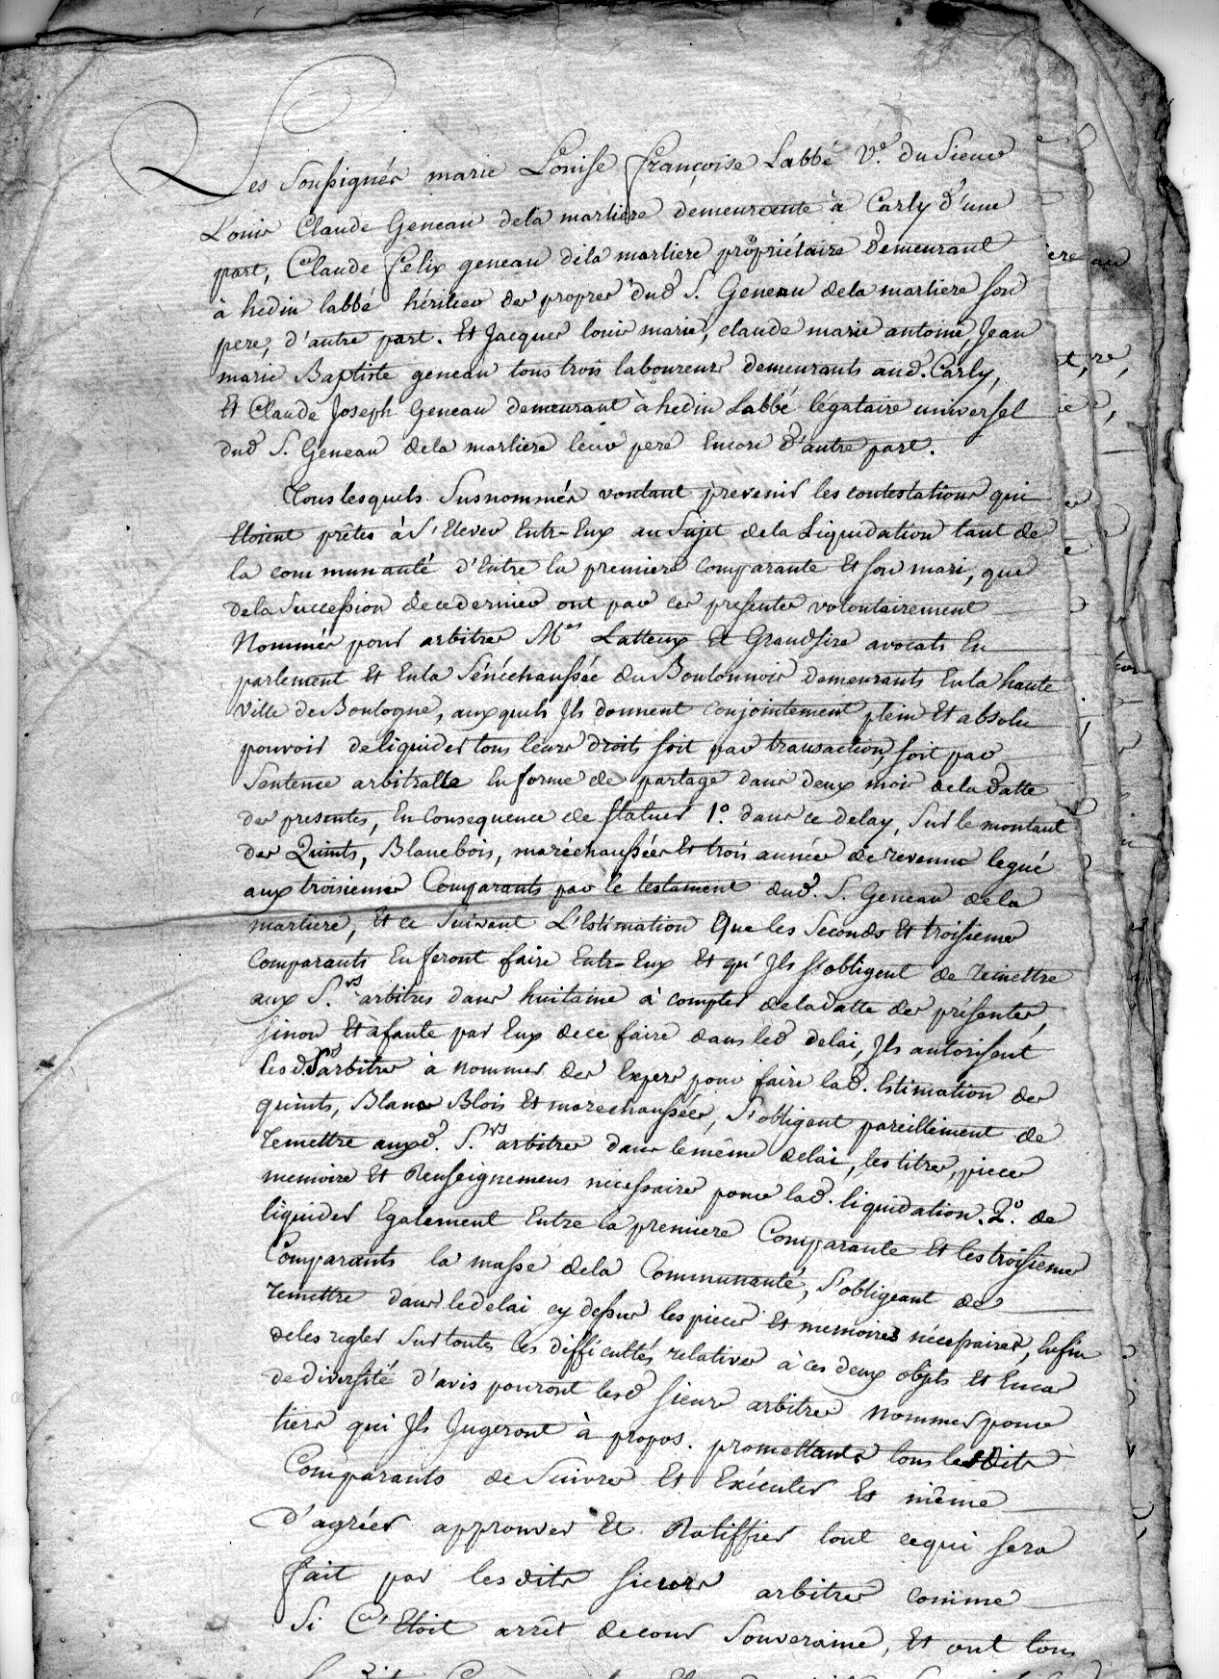 Les Soussignés marie Louise françoise Labbé V.e du Sieur
Louis Claude Geneau dela marliere demeurante à Carly d'une
part, Claude Felix geneau dela marliere propriétaire demeurant
à hedin labbé héritier des propres dud S. Geneau dela marliere son
pere, d'autre part. Et Jacques louis marie, claude marie antoine, Jean
marie Baptiste geneau tous trois laboureurs demeurants aud. Carly,
Et Claude Joseph Geneau demeurant à hedin Labbé légataire universel
dud S. Geneau dela marliere leur pere Encore d'autre part.
Tous lesquels Susnommés voulant prevenir les contestations qui
Etoient prêtes à S'Elever Entr-Eux au Sujet dela Liquidation tant de
la communauté d'Entre la premiere Comparante Et son mari, que
dela Succession decedernier ont par ces presentes volontairement
Nommés pour arbitres M.es Latteux Et Grandsire avocats En
parlement Et Enla Sénéchaussée du Boulonnois demeurants Enla haute
Ville de Boulogne, auxquels Ils donnent conjointement plein Et absolu
pouvoir deliquider tous leurs droits soit par transaction, soit par
Sentence arbitralle En forme de partage dans deux mois dela datte
des presentes, En Consequence de statuer 1.° dans ce delay, Sur le montant
des Quints, Blancbois, maréchaussées Et trois années de revenu legué
aux troisiemes Comparants par le testament dud. S. Geneau dela
marliere, Et ce Suivant L'Estimation Que les Seconds Et troisiemes
Comparants En feront faire Entr-Eux Et qu'Ils s'obligent de remettre
aux S.rs arbitres dans huitaine à compter deladatte des présentes,
sinon Et àfaute par Eux dece faire dans led delai, Ils autorisent
lesd. S.rs arbitres à nommer des Expers pour faire lad. Estimation des
quints, Blanc Blois Et marechaussées, S'obligant pareillement de
remettre auxd. S.rs arbitres dans lemême delai, les titres, pieces
memoire Et Renseignemens nécessaires pour lad. liquidation. 2.° de
liquider Egalement Entre la premiere Comparante Et les troisiemes
Comparants la masse dela Communauté, S'obligeant de
remettre dans ledelai cy dessus les pieces Et memoires nécessaires, Enfin
deles regler Sur toutes les difficultés relatives à ces deux objets Et Encas
dediversité d'avis pouront lesd sieurs arbitres nommer pour
tiers qui Ils Jugeront à propos. promettants tous lesdits
Comparants de Suivre Et Exécuter Et même
d'agréer approuver Et Ratiffier tout cequi sera
fait par lesdits sieurs arbitres comme
Si C'Etoit arrêt decour Souveraine, Et ont tous